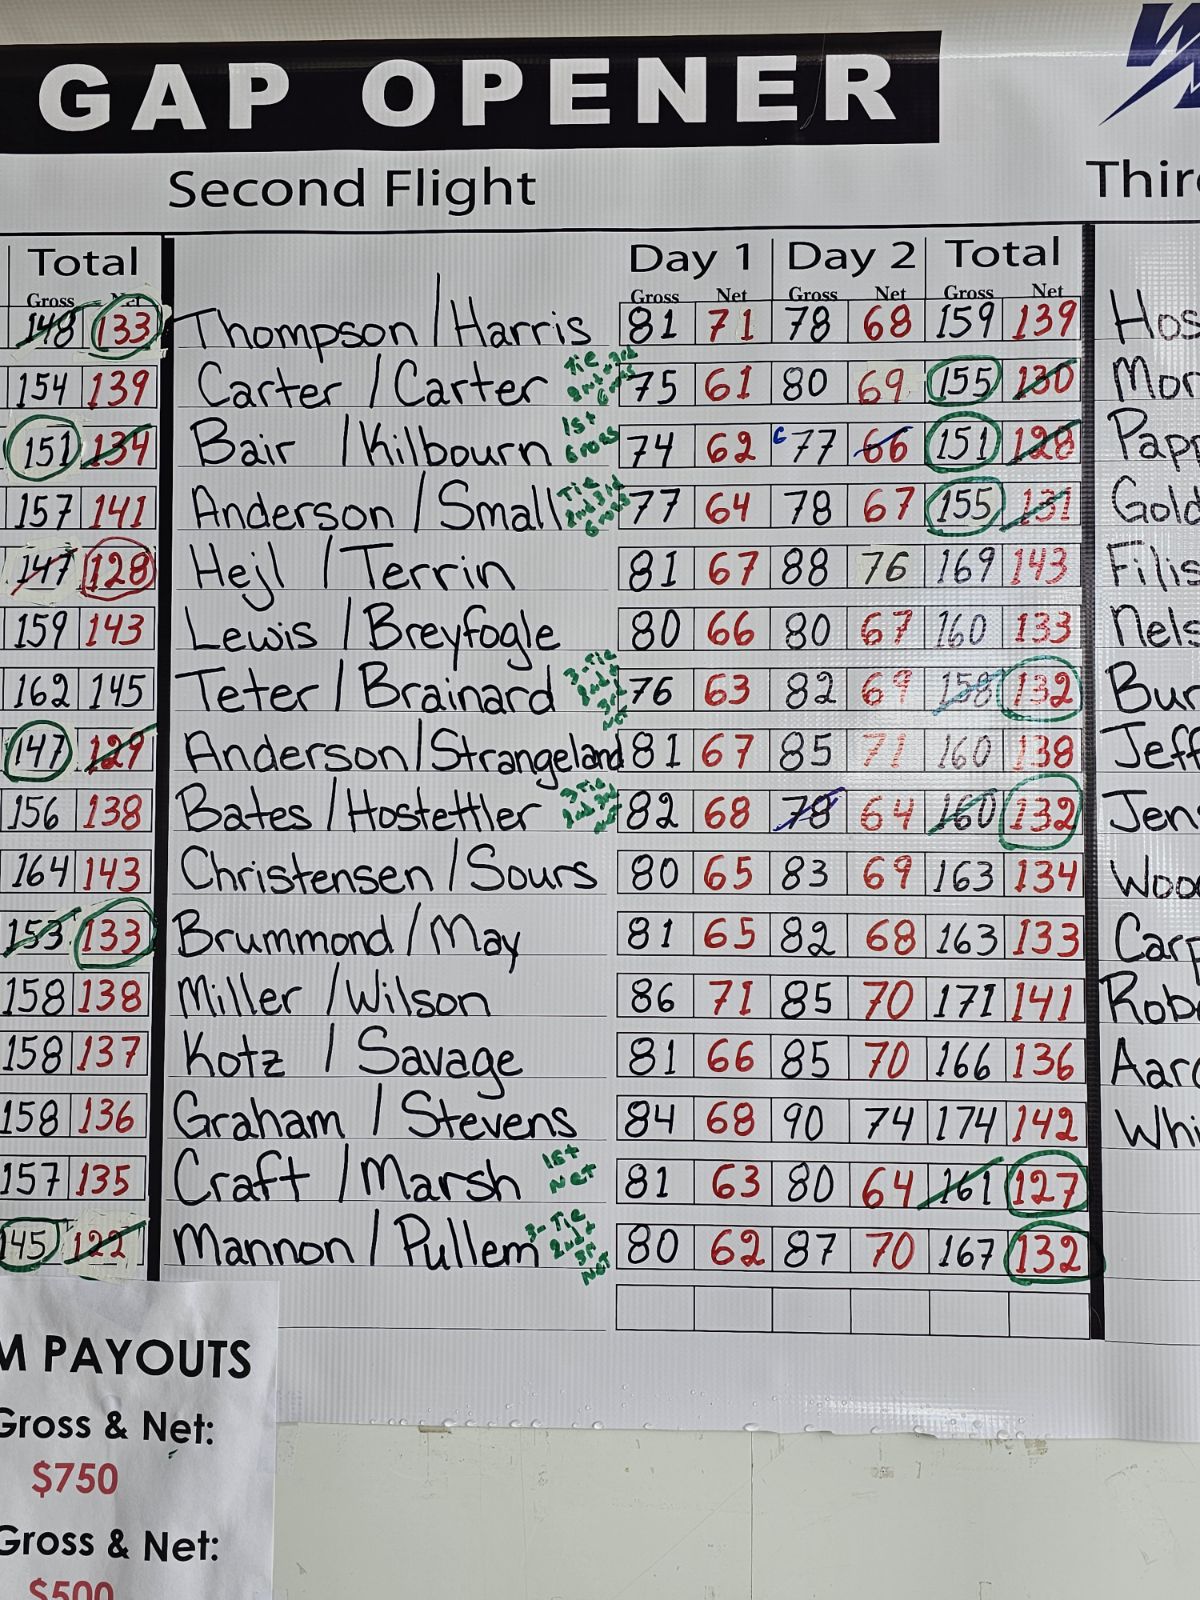 GAP OPENER
Second Flight
Total
Gross Net
148 133
154 139
151 134
157 141
147 128
159 143
162 145
147 129
156 138
164 143
153 133
158 138
158 137
158 136
157 135
145 122
Day 1 Day 2 Total
Gross Net Gross Net Gross Net
Thompson / Harris 81 71 78 68 159 139
Carter / Carter Tie 2nd + 3rd Gross 75 61 80 69 155 130
Bair / Kilbourn 1st Gross 74 62 C 77 66 151 128
Anderson / Small Tie 2nd 3rd Gross 77 64 78 67 155 131
Hejl / Terrin 81 67 88 76 169 143
Lewis / Breyfogle 80 66 80 67 160 133
Teter / Brainard 3-Tie 2nd 3rd Net 76 63 82 69 158 132
Anderson / Strangeland 81 67 85 71 160 138
Bates / Hostettler 3 Tie 2nd 3rd Net 82 68 78 64 160 132
Christensen / Sours 80 65 83 69 163 134
Brummond / May 81 65 82 68 163 133
Miller / Wilson 86 71 85 70 171 141
Kotz / Savage 81 66 85 70 166 136
Graham / Stevens 84 68 90 74 174 142
Craft / Marsh 1st Net 81 63 80 64 161 127
Mannon / Pullem 3-Tie Net 80 62 87 70 167 132
Thir
Hos
Mor
Papp
Gold
Filis
Nels
Bur
Jeff
Jen
Wood
Carp
Rob
Aar
Whi
M PAYOUTS
Gross & Net:
$750
Gross & Net:
$500